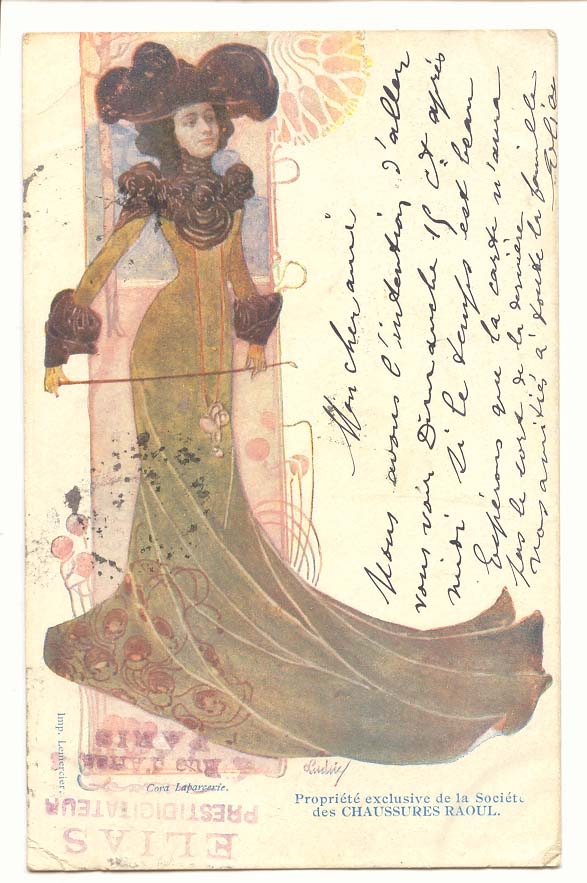 Mon cher ami
Nous avons l'intention d'aller
vous voir Dimanche 15 ct après
midi si le temps est beau
Espérons que la carte n'aura
pas le sort de la dernière
nos amitiés à toute la famille
Elias
Imp. Lemercier.
Cora Laparcerie.
Propriété exclusive de la Société
des CHAUSSURES RAOUL.
ELIAS
PRESTIDIGITATEUR
PARIS